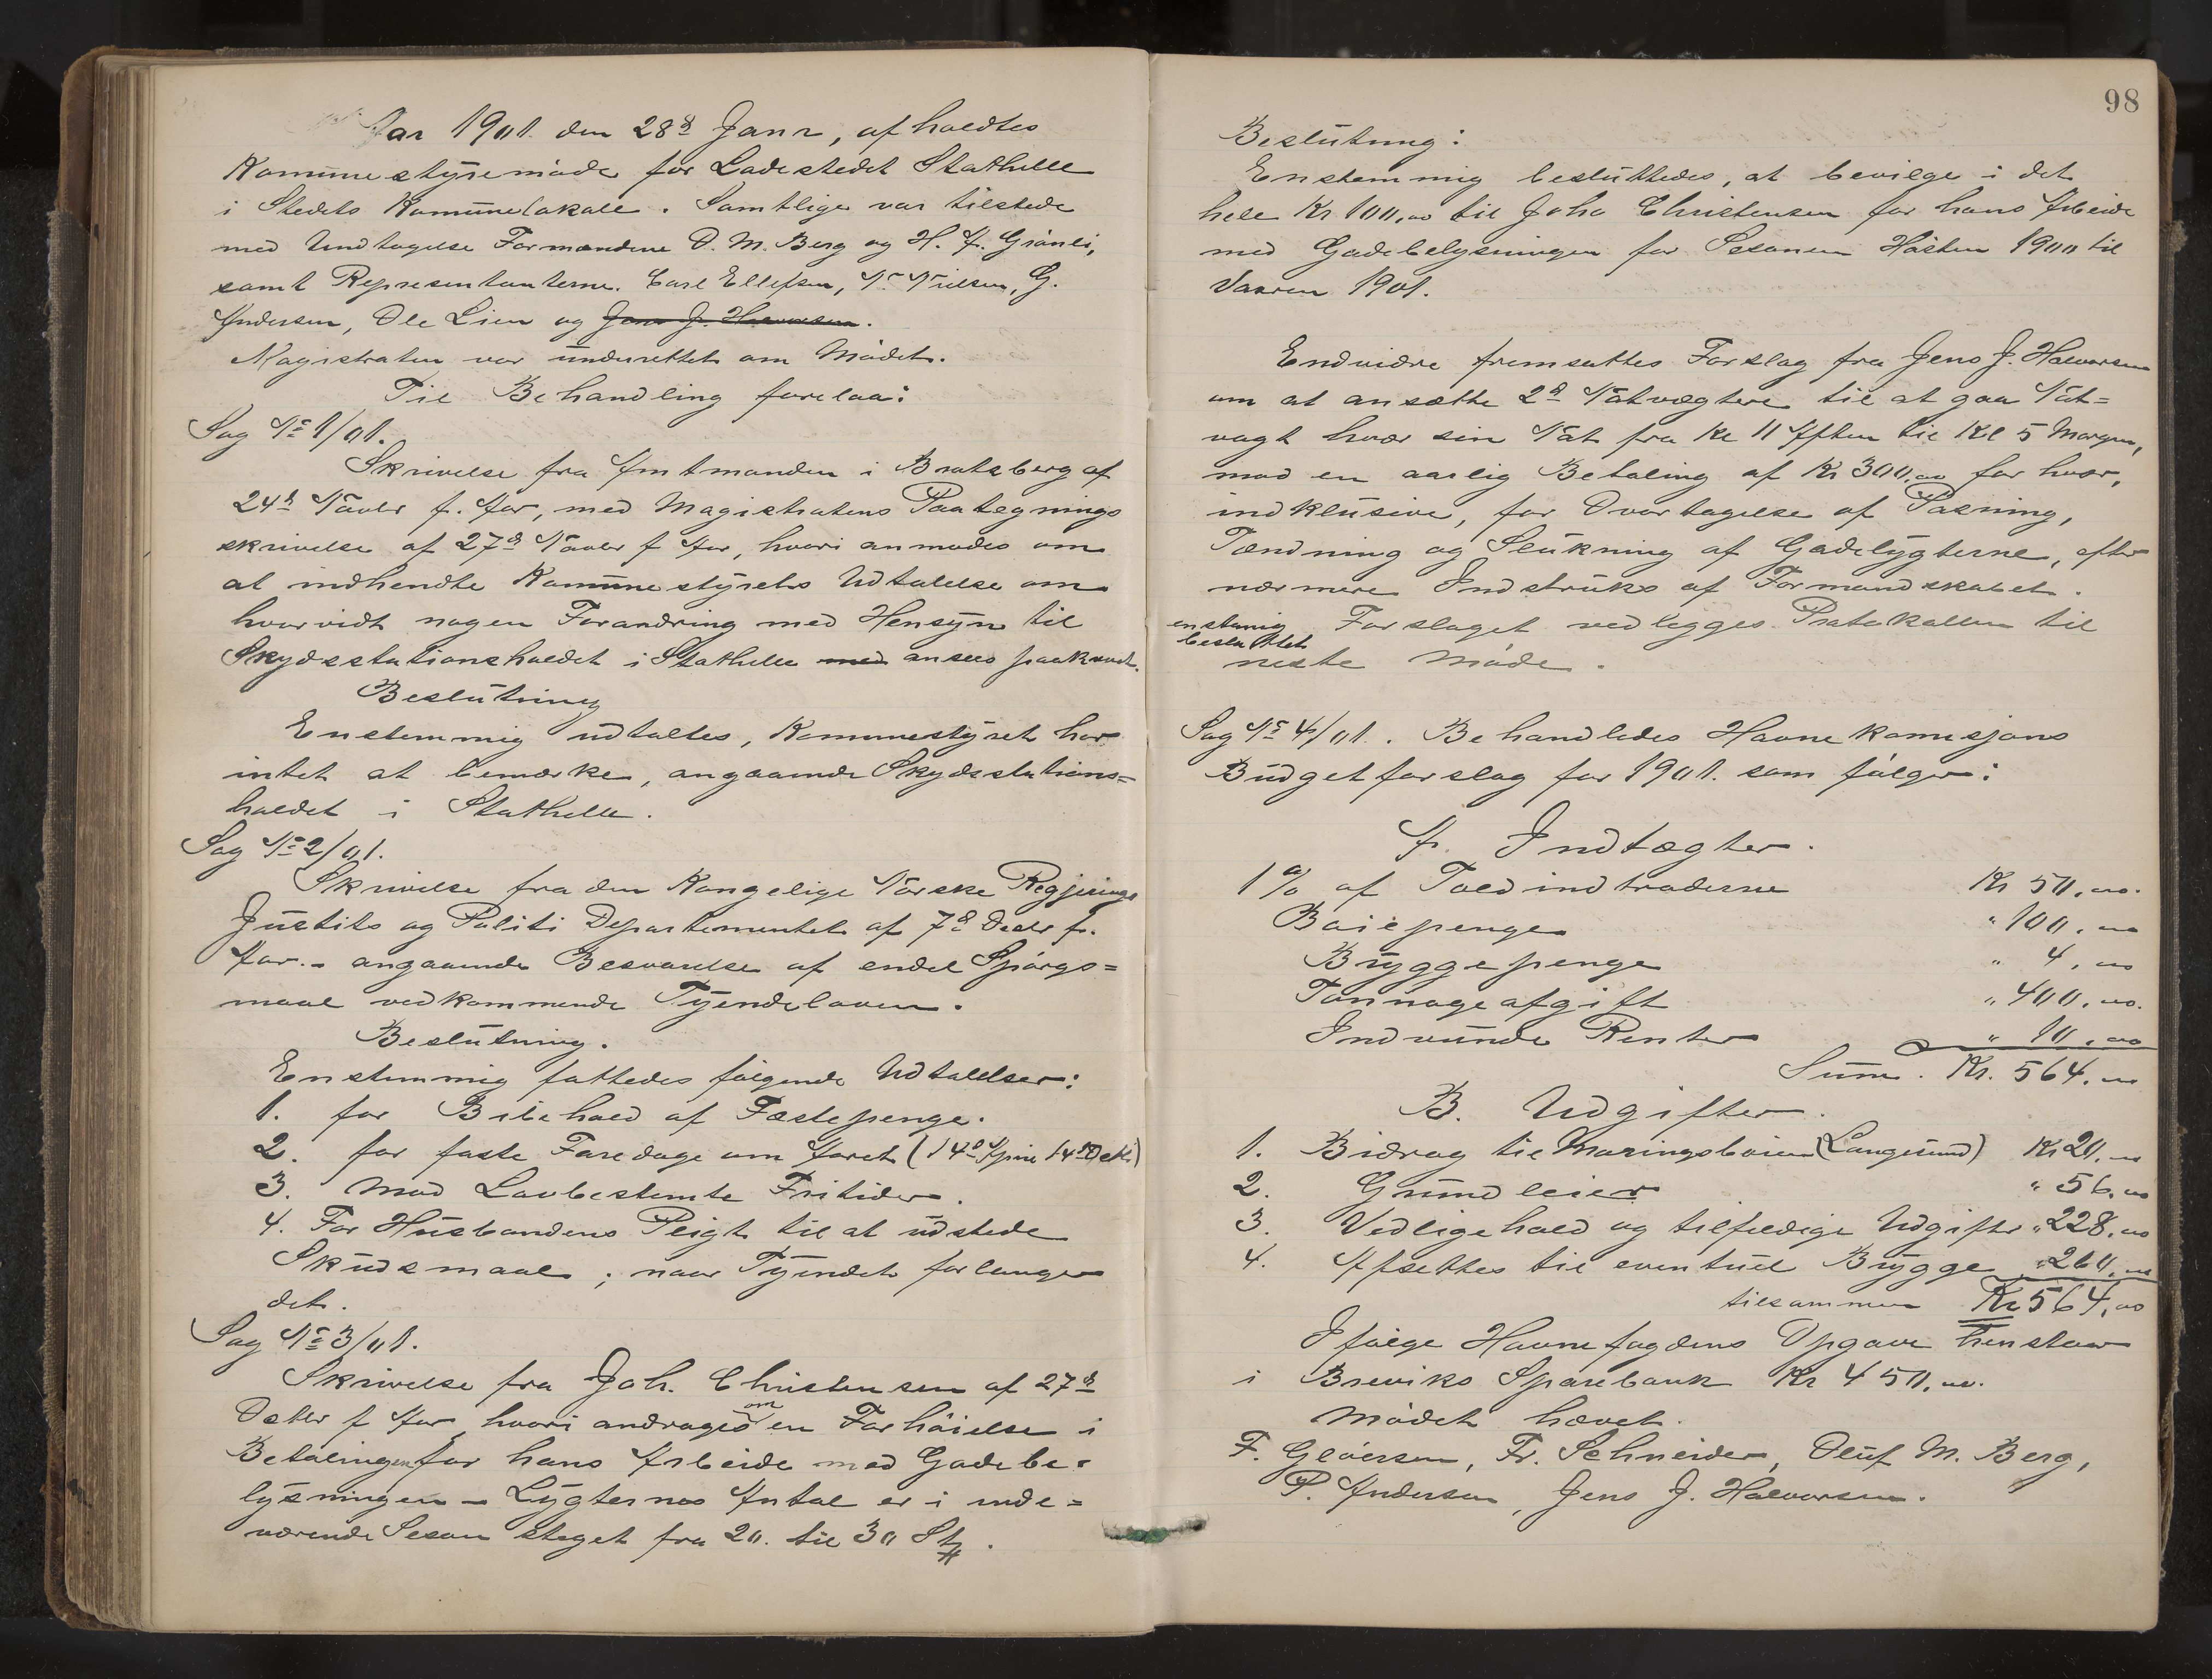 Aar 1901. den 28de Janr, afholdtes
Kommunestyremöde for Ladestedet Stathelle
i Stedets Komunelokale. Samtlige var tilstede
med Undtagelse Formændene O. M. Berg og H. A. Grönli,
samt Representanterne. Carl Ellefsen, N. Nielsen, G.
Andersen, Ole Lien og Jens J. Halvorsen.
Magistraten var underrettet om Mödet.
Til Behandling forelaa:
Sag No 1/01.
Skrivelse fra Amtmanden i Bratsberg af
24de Novbr f. Aar, med Magistratens Paategnings
skrivelse af 27de Novbr f Aar, hvori anmodes om
at indhendte Komunestyrets Udtalelse om
hvorvidt nogen Forandring med Hensyn til
Skydsstationsholdet i Stathelle med ansees paakrævet.
Beslutning
Enstemmig udtaltes, Kommunestyret har
intet at bemærke, angaaende Skydsstations=
holdet i Stathelle.
Sag No 2/01.
Skrivelse fra den Kongelige Norske Regjerings
Justits og Politi Departementet af 7de Decbr f.
Aar. - angaaende Besvarelse af endel Spörgs=
maal vedkommende Tyendeloven.
Beslutning.
Enstemmig fattedes fölgende Udtalelser:
1. for Bibehold af Fæstepenge.
2. for faste Faredage om Aaret (14de April 14de Octbr)
3. Mod Lovbestemte Fritider.
4. For Husbondens Pligt til at udstede
Skudsmaal; naar Tyendet forlanger
det.
Sag No 3/01.
Skrivelse fra Joh. Christensen af 27de
Octbr f Aar hvori andrages om en Forhöielse i
Betalingen for hans Arbeide med Gadebe=
lysningen - Lygternes Antal er i inde=
værende Seson steget fra 20. til 30 St.
98
Beslutning:
Enstemmig besluttedes, at bevilge i det
hele Kr 100,00 til Joho Christensen for hans Arbeide
med Gadebelysningen for Sesonen Hösten 1900 til
Vaaren 1901.
Endvidre fremsattes Forslag fra Jens J. Halvorsen
om at ansætte 2de Natvægtere til at gaa Nat=
vagt hver sin Nat fra Kl 11 Aften til Kl 5 Morgen,
mod en aarlig Betaling af Kr 300,00 for hver,
indklusive, for Overtagelse af Pasning,
Tænding og Slukning af Gadelygterne, efter
nærmere Indstruks af Formandskabet.
enstemig Forslaget vedlegges Protokollen til
besluttet
neste Möde.
Sag No 4/01. Behandledes Havnekomisjons
Budgetforslag for 1901. som fölger:
A. Indtægter.
1% af Toldindtraderne Kr 50,00.
Boiepenge " 100,00
Bryggepenge " 4,00
Tonnageafgift " 400,00.
Indvundne Renter " 10,00
Sum. Kr. 564,00
B. Udgifter.
1. Bidrag til Moringsboien (Langesund) Kr 20,00
2. Grundleier " 56,00
3. Vedligehold og tilfeldige Udgifter " 228,00
4. Afsættes til eventuel Brygge " 260,00
tilsammen Kr 564,00
Ifölge Havnefogdens Opgave henstaar
i Breviks Sparebank Kr 450,00.
Mödet hævet.
F. Glöersen, Fr. Schneider, Oluf M. Berg,
P. Andersen, Jens J. Halvorsen.